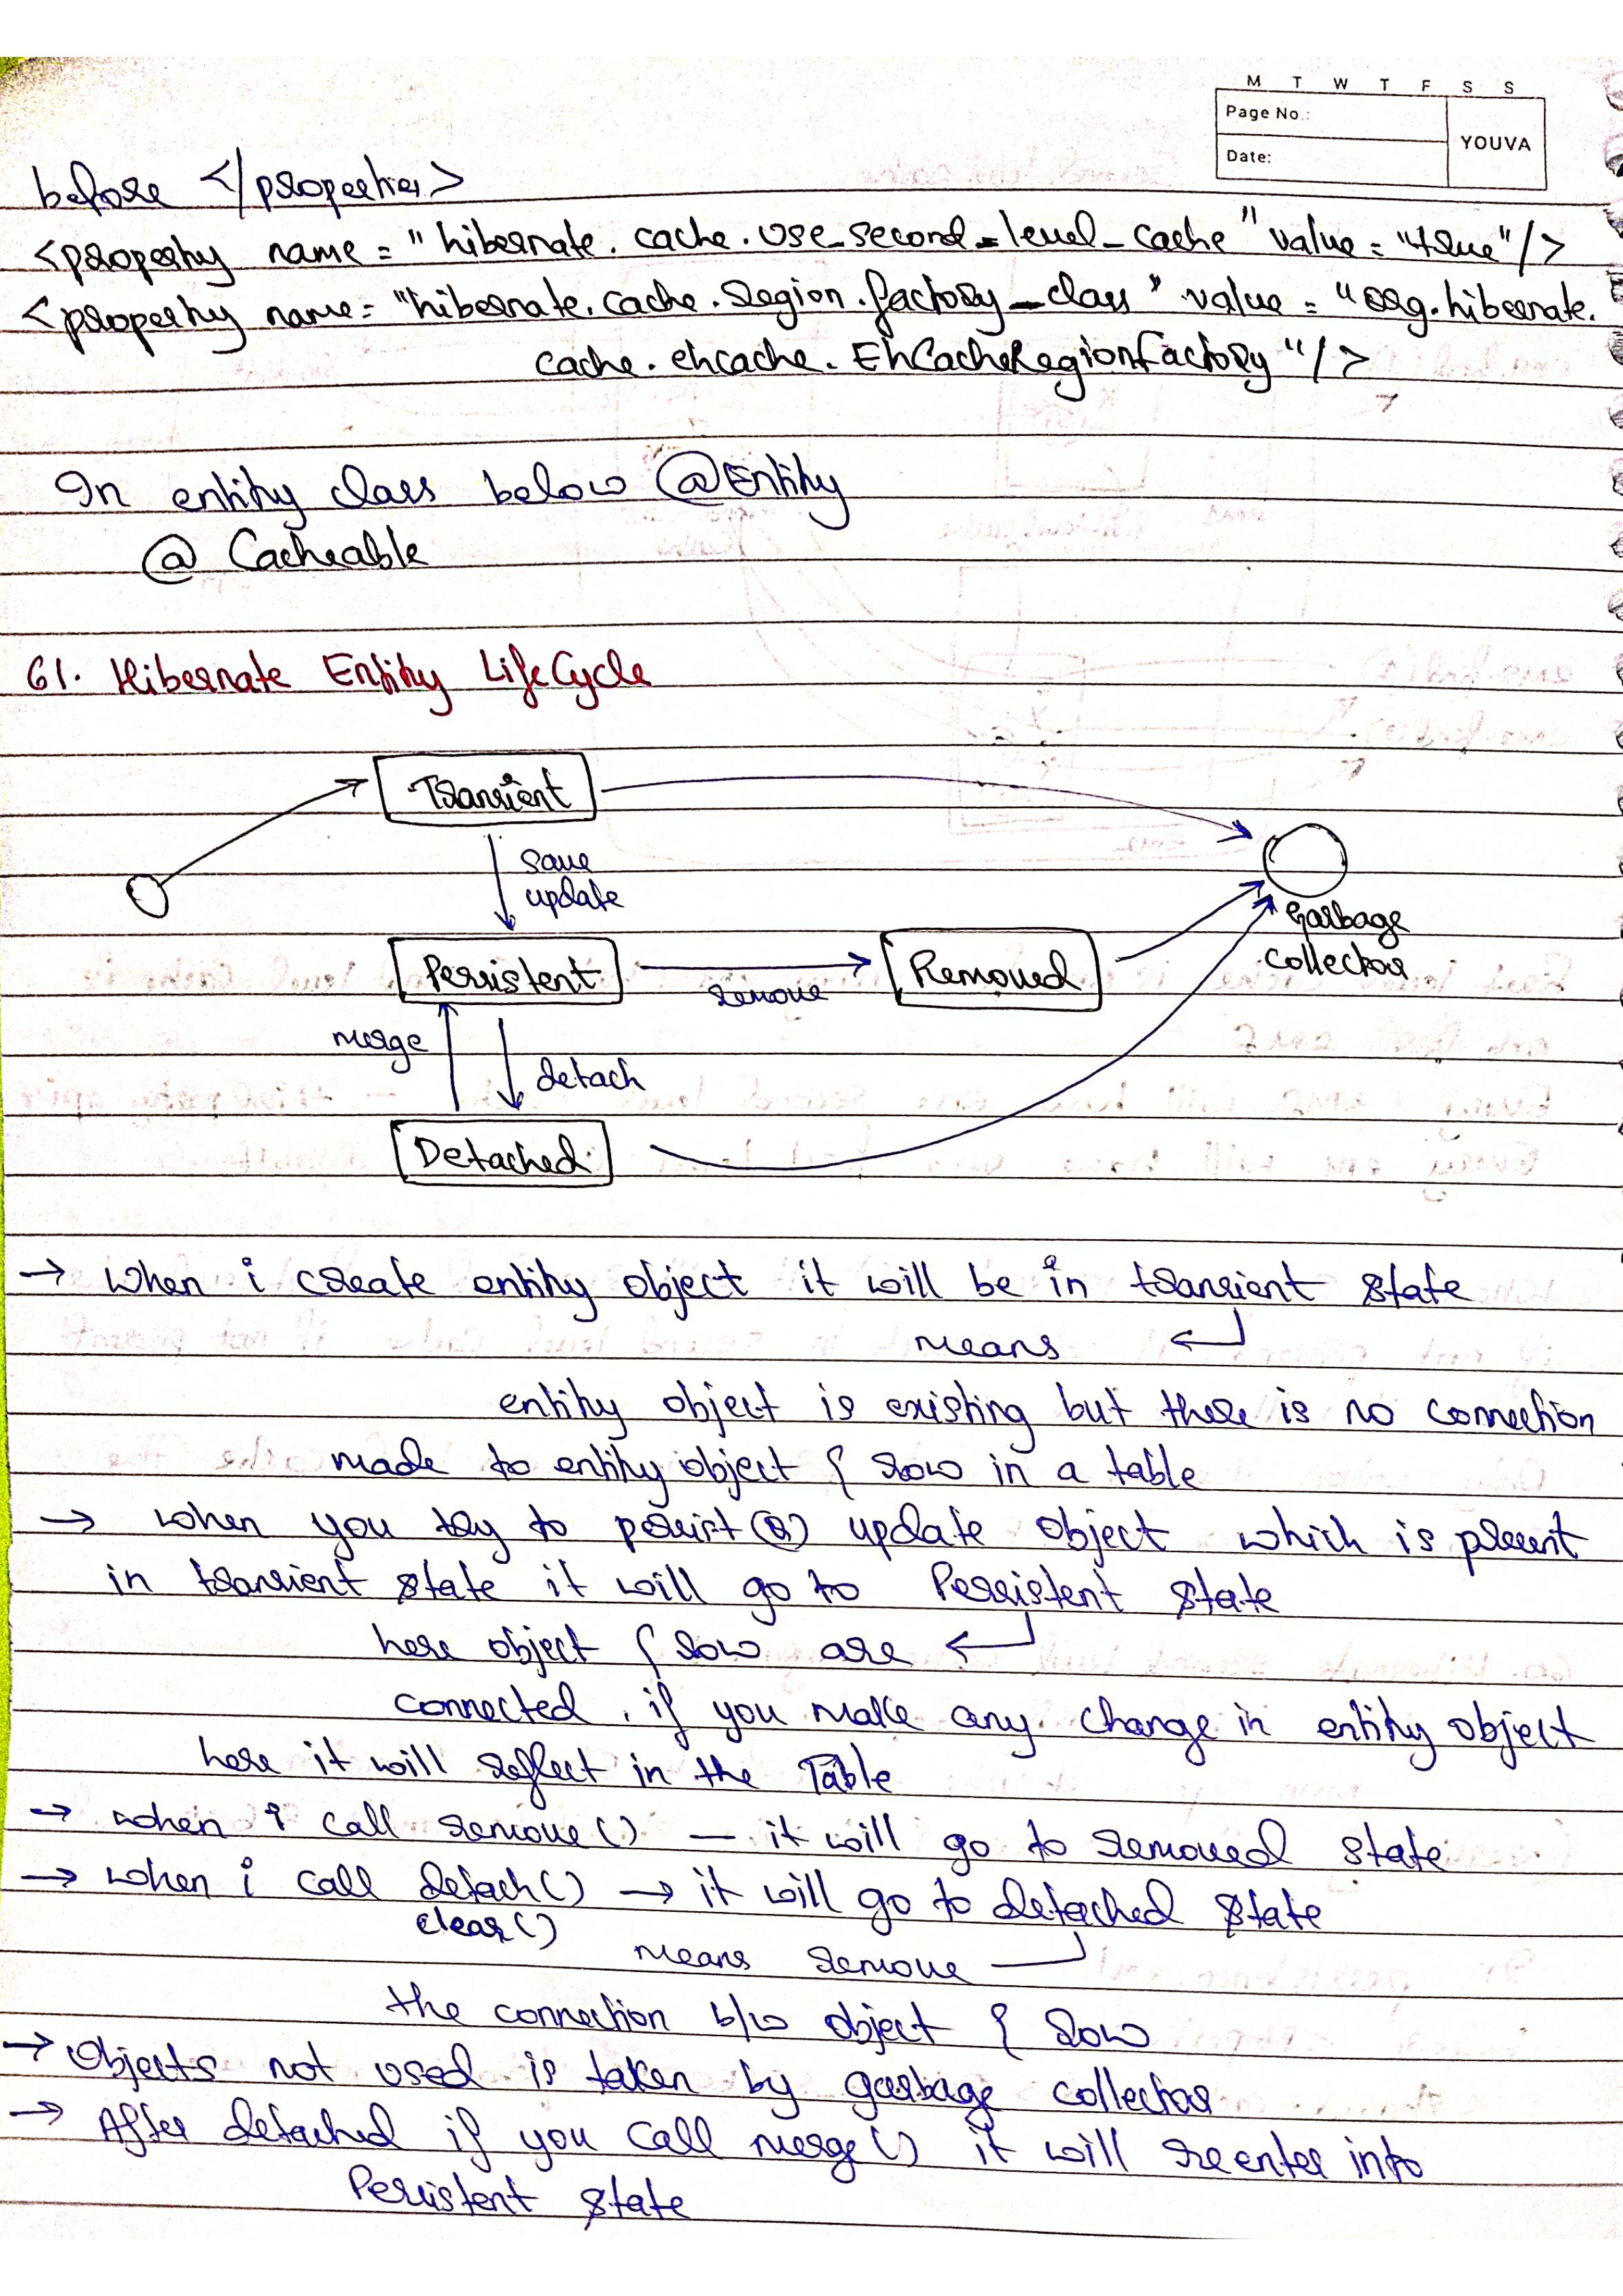 M T W T F S S
Page No.:
YOUVA
Date:
before </properties>
<property name = "hibernate.cache.use_second_level_cache" value = "true"/>
<property name = "hibernate.cache.region.factory_class" value = "org.hibernate.
cache.ehcache.EhCacheRegionFactory"/>
In entity class below @Entity
@ Cacheable
61. Hibernate Entity LifeCycle
Transient
save
update
Garbage
collector
Persistent
remove
Removed
merge
detach
Detached
→ when i create entity object it will be in transient state
means ↵
entity object is existing but there is no connection
made to entity object & row in a table
→ when you try to persist (or) update object which is present
in transient state it will go to Persistent state
here object & row are ↵
connected, if you make any change in entity object
here it will reflect in the Table
→ when i call remove() — it will go to removed state
→ when i call detach() → it will go to detached state
clear()
means remove
the connection b/w object & row
→ Objects not used is taken by garbage collector
→ After detached if you call merge() it will reenter into
Persistent state